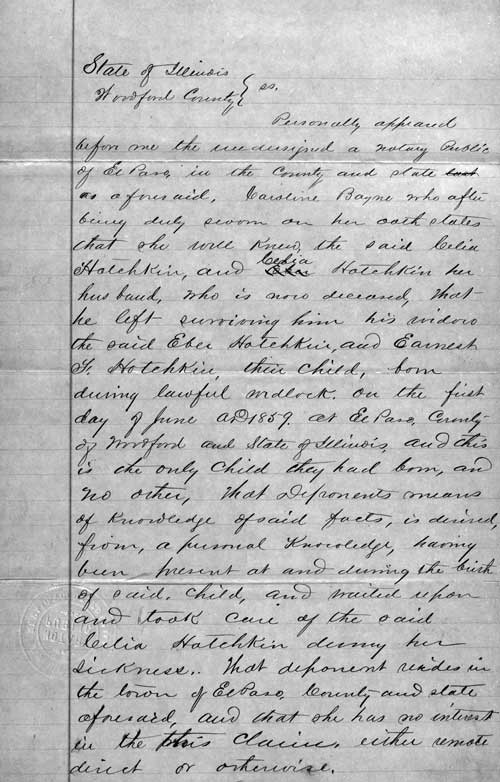 State of Illinois
Woodford County } ss.
Personally appeared
before me the undersigned a notary Public
of El Paso, in the County and state last
as aforesaid, Caroline Bayne who after
being duly sworn on her oath states
that she well knew, the said Celia
Hotchkin, and Celia Eber Hotchkin her
husband, who is now deceased, that
he left surviving him his widow
the said Eber Hotchkin, and Earnest
F. Hotchkin, their child, born
during lawful wedlock. on the first
day of June AD 1859. at El Paso, County
of Woodford and State of Illinois, and this
is the only child they had born, and
no other, that deponents means
of Knowledge of said facts, is desired,
from, a personal Knowledge, having
been present at and during the birth
of said, child, and waited upon
and took care of the said
Celia Hotchkin during her
sickness.. That deponent resides in
the town of El Paso, County and state
aforesaid, and that she has no interest
in the this claim, either remote
direct or otherwise.